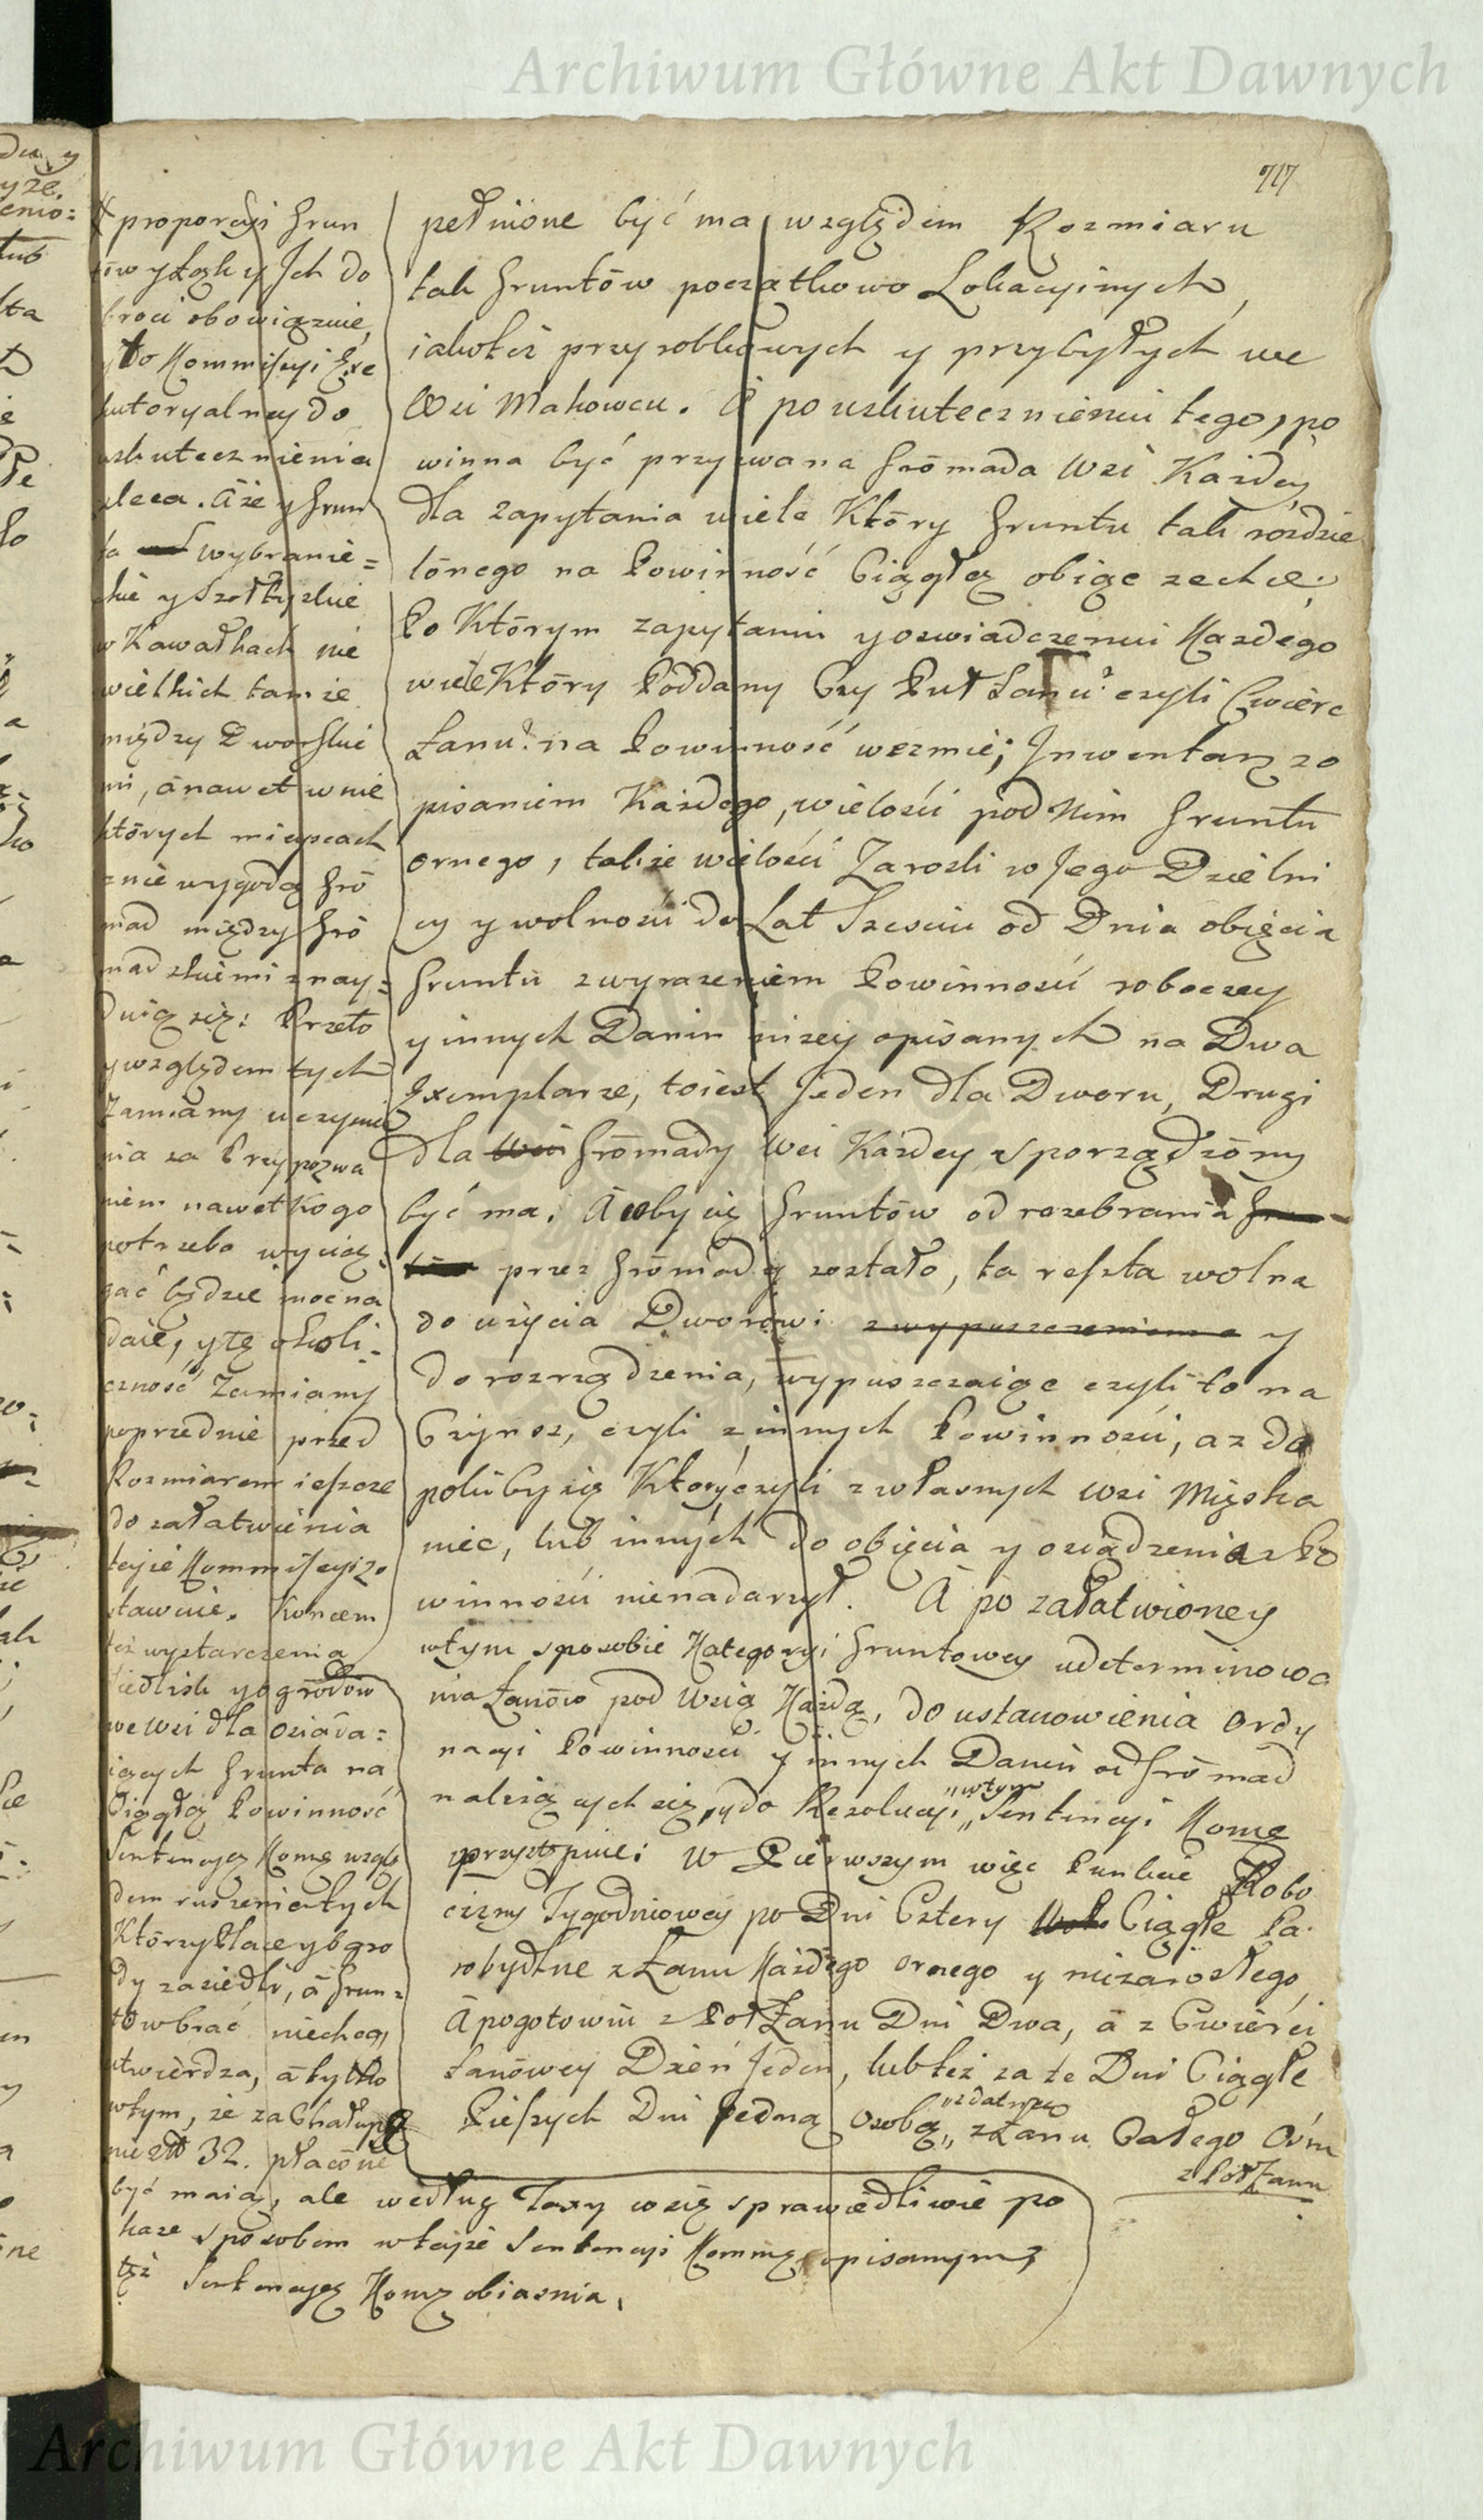 Archiwum Główne Akt Dawnych
717
pełnione być ma względem Rozmiaru
tak Gruntów początkowo Lokacyinych,
iakoteż przyrobkowych y przybyłych we
Wsi Makowcu. A po uskutecznieniu tego, po
winna być przyzwana Grōmada Wsi Każdey
dla zapytania wiele Ktōry Gruntu tak rozdzie
lōnego na Powinność Ciągłą obiąc zechce;
Po Ktōrym zapytaniu y oswiadczeniu Każdego
wiele Ktōry Poddany Czy Puł Łanu? czyli Cwierc
Łanu? na Powinność wezmie; Jnwentarz zo
pisaniem Każdego, wielosci pod Nim Gruntu
ornego, takze wielości Zarosli w Jego Dzielni
cy y wolnosci do Lat Szesciu od Dnia obięcia
Gruntu z wyrazeniem Powinnosci roboczey
y innych Danin nizey opisanych na Dwa
Exemplarze, toiest Jeden dla Dworu, Drugi
dla Wsi Grōmady Wsi Każdey sporządzōny
być ma. A coby się Gruntōw od rozebrania Grun
tōw przez Grōmady zostało, ta reszta wolna
do uzycia Dworowi z wypuszczeniem y
do rozrządzenia, wypuszczaiąc czyli to na
Czynsz, czyli z innych Powinności, az do
poki by się Ktory czyli z własnych wsi Mięszka
niec, lub innych do obięcia y osiadzenia z Po
winnosci nienadarzył. A po załatwioney
wtym sposobie Kategoryi Gruntowey udeterminowa
nia Łanōw pod Wsią Każdą, do ustanowienia Ordy
nacyi Powinności y innych Danin od Grōmad
nalezących się, y do Rezolucyi „wtym„ Sentencyi Komę
przystąpiwe: W Pierwszym więc Punkcie Robo
cizny Tygodniowey po Dni Cztery Ciągłe Pa
robydlne z Łanu Każdego ornego y niezarosłego,
A pogotowiu z Poł Łanu Dni Dwa, ā z Cwierci
Łanōwey Dzień Jeden, lubteż za te Dni Ciągłe
Pieszych Dni Jedną Osobą „zdatną„ z Łanu Całego Ośm
z Poł Łanu
proporcyi Grun
tōw y Łąk y Jch do
broci obowiązuie,
y to Kommissyi Exe
kutoryalney do
uskutecznienia
zleca. A że y Grun
ta wybranie=
ckie y Szołtyskie
w Kawałkach nie
wielkich tamże
między Dworskie
mi, ā nawet w nie
ktōrych mieyscach
z nie wygodą Grō
mad między Grō
madzkiemi znay=
duią się: Przeto
y względem tych
Zamiany uczynie
nia za Przypozwa
niem nawet Kogo
potrzeba wyciąg
gać będzie moc na
daie, y tę okoli=
czność Zamiany
poprzednie przed
Rozmiarem ieszcze
do załatwienia
teyże Kommissyi zo
stawuie. Koncem
też wystarczenia
siedlisk y ogrōdōw
we wsi dla osiada=
iących Grunta na
Ciągłą Powinność
Sentencyą Komę wzglę
dem ruszenia tych
Ktōrzy Place y Ogro
dy zasiedli, ā Grun=
tōw brać niechcą,
utwierdza, ā tylko
wtym, że za Chałupę
nie złł 32. płacōne
być maią, ale według Taxy wsię sprawiedliwie po
każe sposobem wteyże Sentencyi Kommę opisanym,
też Sentencyą Komę obiasnia.
Archiwum Główne Akt Dawnych